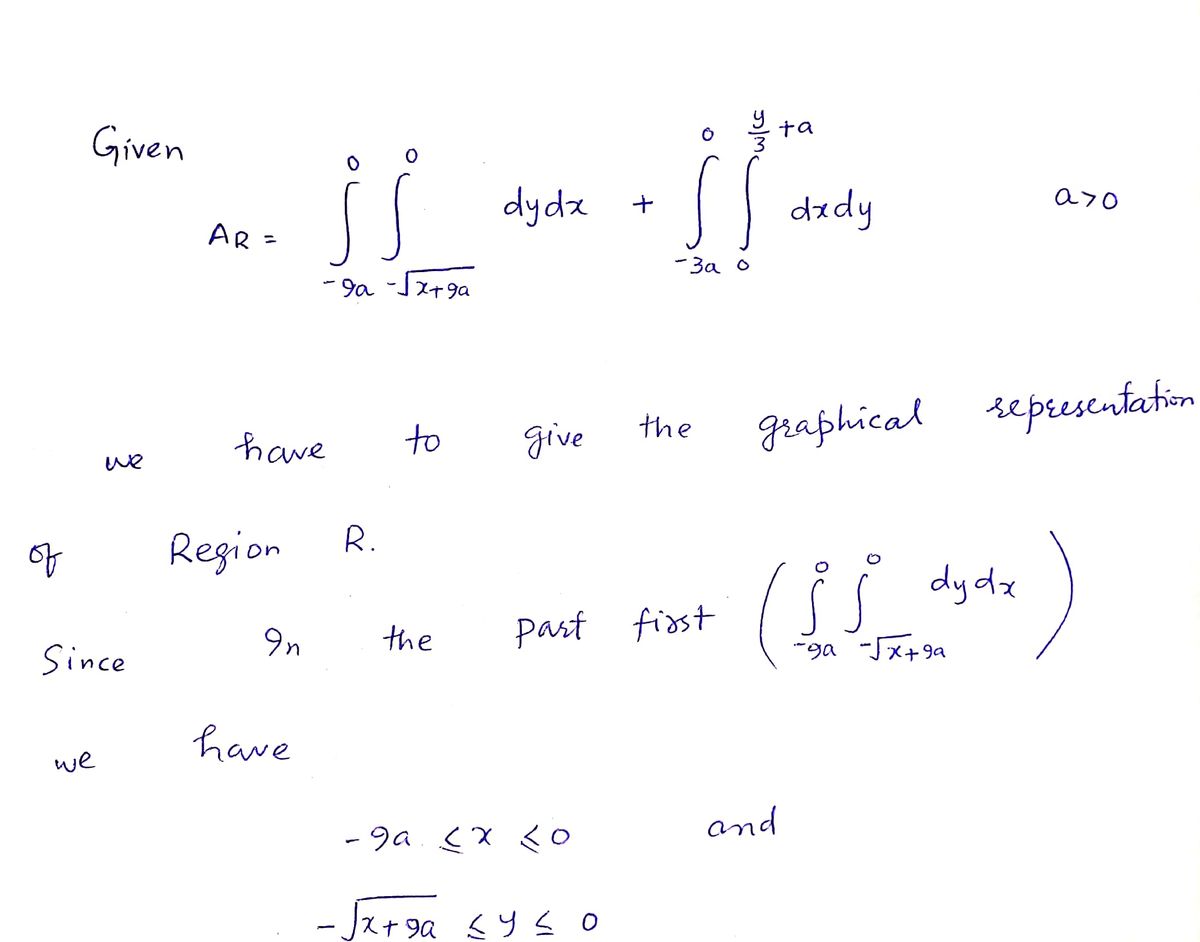 Given
A_R = ∫_{-9a}^{0} ∫_{-√(x+9a)}^{0} dydx + ∫_{-3a}^{0} ∫_{0}^{y/3 + a} dxdy a>0
we have to give the graphical representation
of Region R.
Since In the part first ( ∫_{-9a}^{0} ∫_{-√(x+9a)}^{0} dydx )
we have
-9a ≤ x ≤ 0 and
-√(x+9a) ≤ y ≤ 0